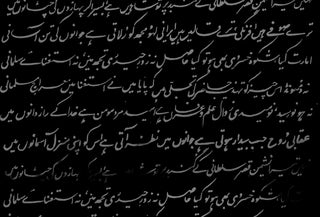 نہیں تیرا نشیمن قصر سلطانی کے گنبد پر بسیرا کر پہاڑوں کی چٹانوں میں
ترے صوفے ہیں افرنگی ترے قالیں ہیں ایرانی لہو مجھ کو رلاتی ہے جوانوں کی تن آسانی
امارت کیا شکوہ خسروی بھی ہو تو کیا حاصل نہ زور حیدری تجھ میں نہ استغنائے سلمانی
نہ ڈھونڈ اس چیز کو تہذیب حاضر کی تجلی میں کہ پایا میں نے استغنا میں معراج مسلمانی
نہ ہو نومید نومیدی زوال علم و عرفاں ہے امید مرد مومن ہے خدا کے راز دانوں میں
عقابی روح جب بیدار ہوتی ہے جوانوں میں نظر آتی ہے اس کو اپنی منزل آسمانوں میں
نہیں تیرا نشیمن قصر سلطانی کے گنبد پر
شکوہ خسروی بھی ہو تو کیا حاصل نہ زور حیدری تجھ میں نہ استغنائے سلمانی